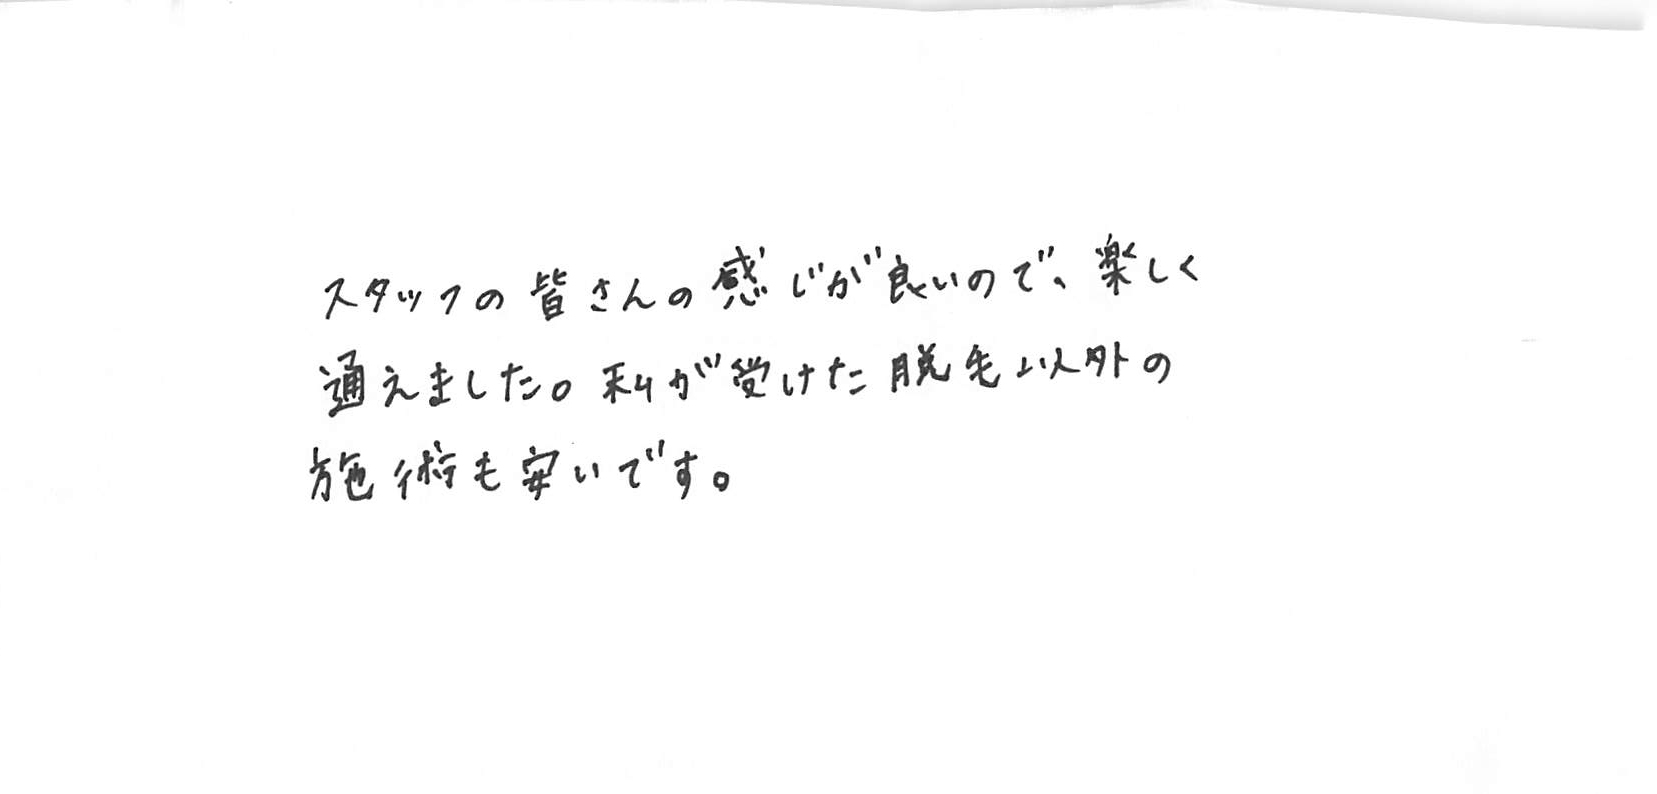 スタッフの皆さんの感じが良いので、楽しく
通えました。私が受けた脱毛以外の
施術も安いです。